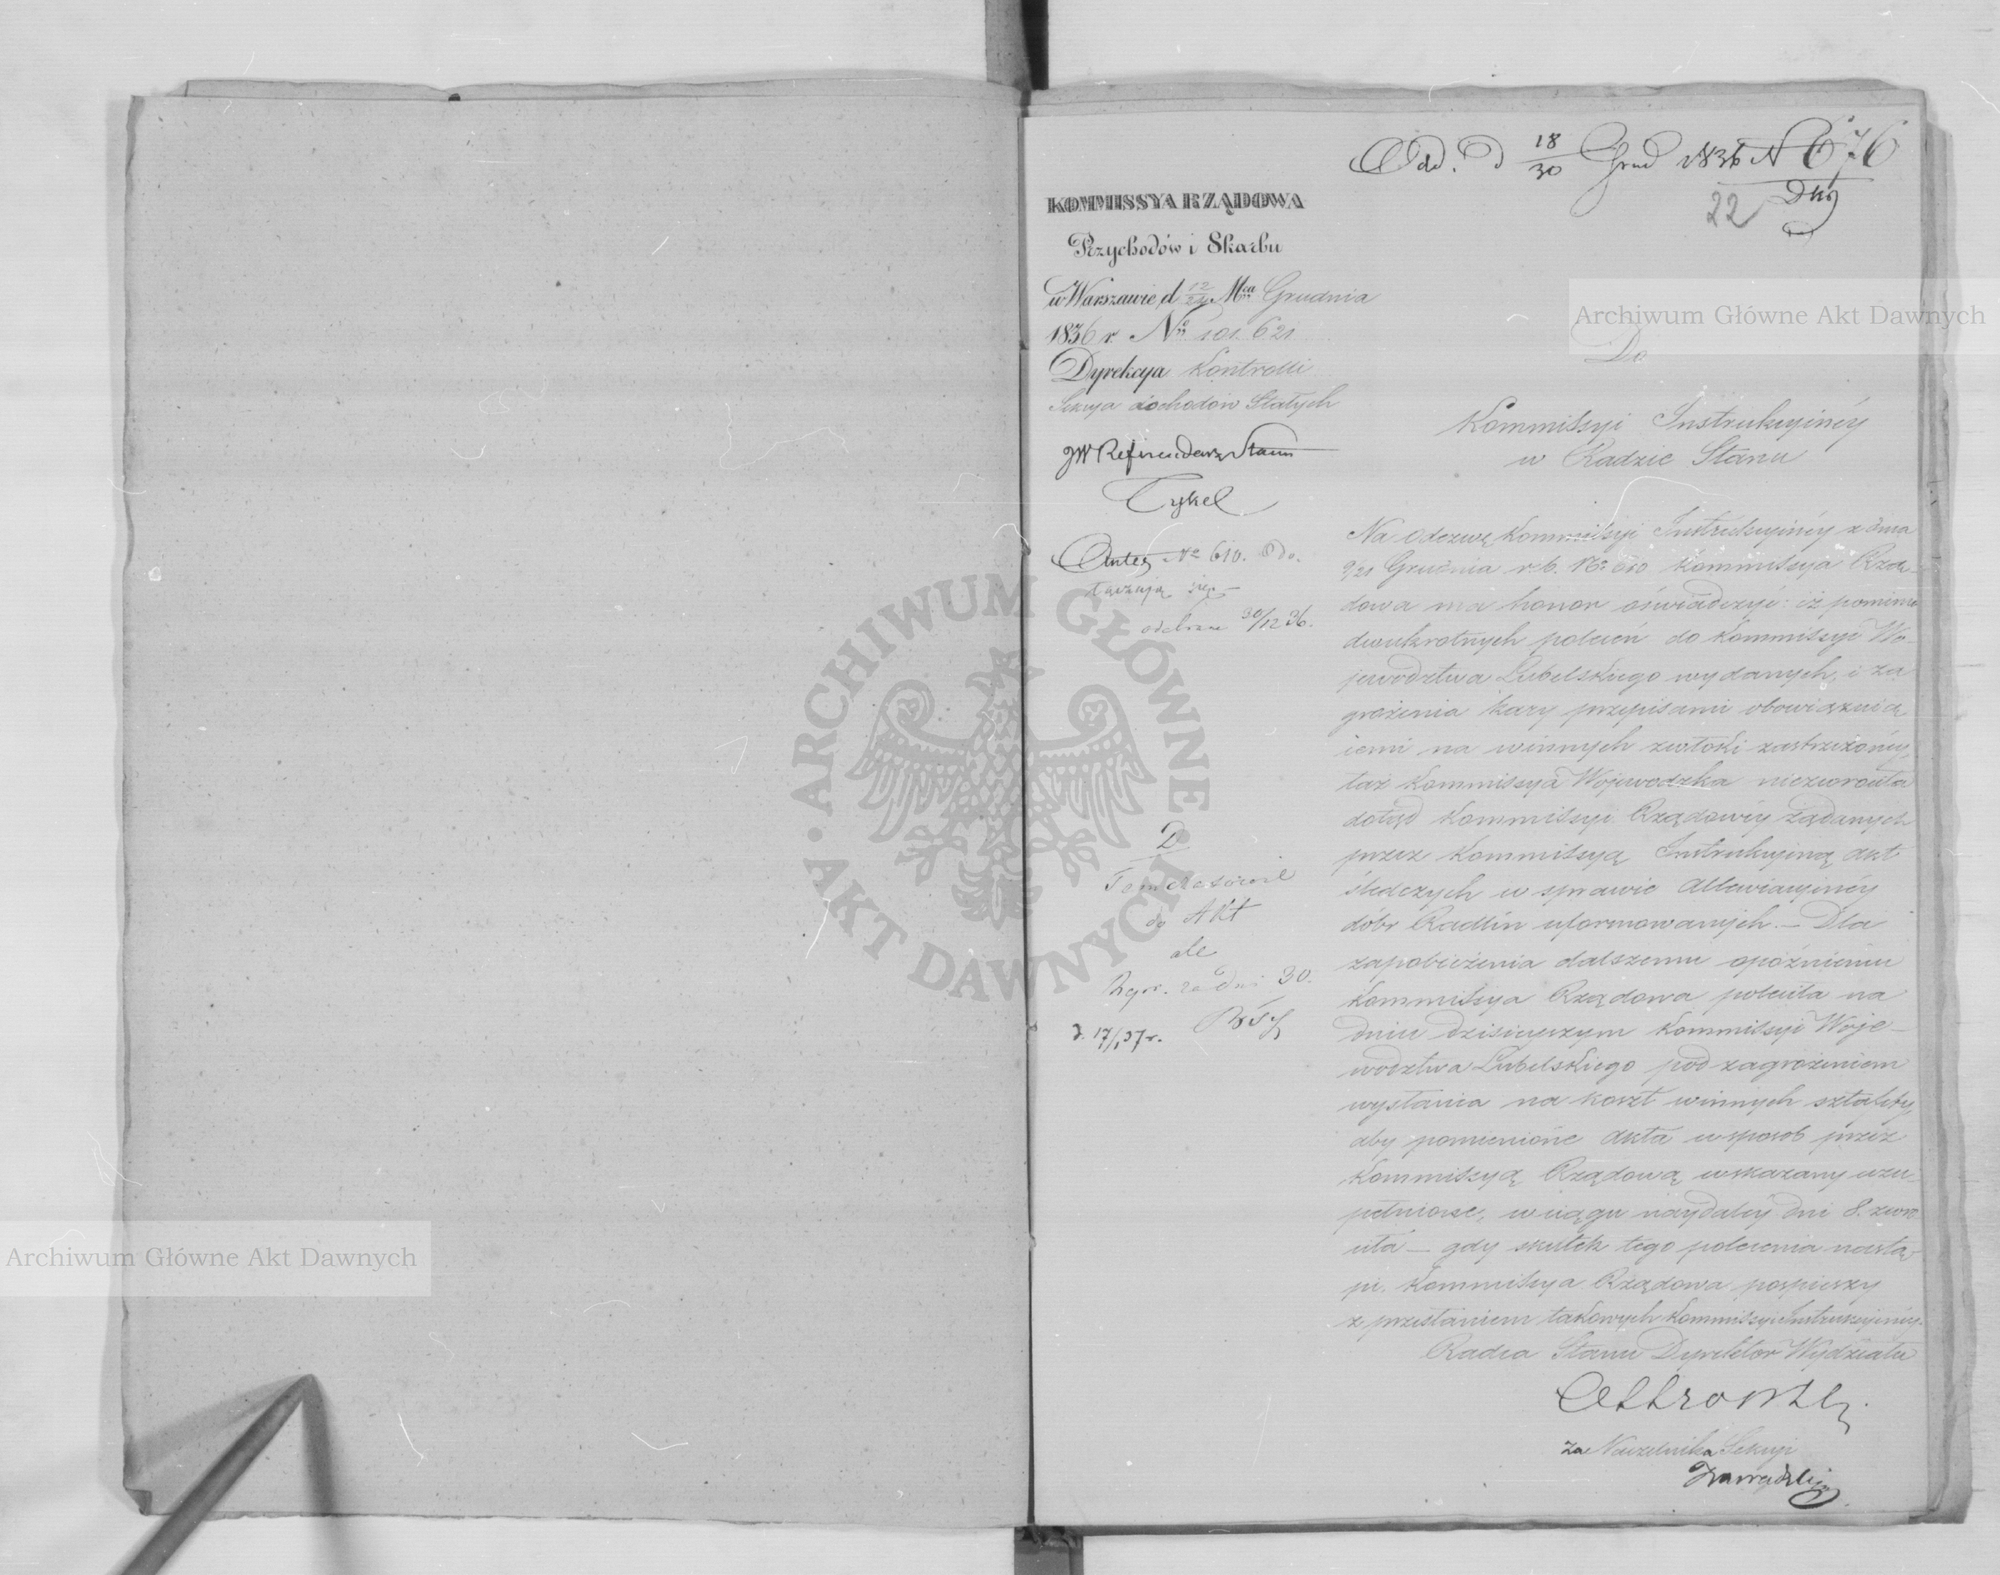 Odd. D 18/30 Grud 1836 N 676
22
KOMMISSYA RZĄDOWA
Przychodów i Skarbu
w Warszawie d 12/24 Mca Grudnia
1836 r. No 101621
Dyrekcya Kontrolli
Sekcya dochodów Stałych
JW Referendarz Stanu
Tykel
Antea No 610.
odebrane 30/12 36.
D
Tymczasowie
do Akt
ale
za dni 30.
d. 17/1 37 r.
Do
Kommissyi Instrukcyinéy
w Radzie Stanu
Na odezwę Kommissyi Instrukcyinéy z dnia
9/21 Grudnia r. b. No 610 Kommissya Rzą-
dowa ma honor oświadczyć: iż pomimo
dwukrotnych poleceń do Kommissyi Wo-
jewództwa Lubelskiego wydanych, i za
grożenia kary przepisami obowiązują
cemi na winnych zwłoki zastrzeżonéy,
taż Kommissya Wojewodzka niezwróciła
dotąd Kommissyi Rządowéy żądanych
przez Kommissyą Instrukcyiną akt
śledczych w sprawie allewiacyinéy
dobr Radlin uformowanych. — Dla
zapobieżenia dalszemu opóźnieniu
Kommissya Rządowa poleciła na
dniu dzisieyszym Kommissyi Woje-
wództwa Lubelskiego pod zagrożeniem
wysłania na koszt winnych sztafety,
aby pomienione akta w sposób przez
Kommissyą Rządową wskazany uzu-
pełnione, w ciągu naydaléy dni 8. zwró
ciła — gdy skutek tego polecenia nastą-
pi. Kommissya Rządowa pospieszy
z przesłaniem takowych Kommissyi Instrukcyinéy.
Radca Stanu Dyrektor Wydziału
za Naczelnika Sekcyi
Archiwum Główne Akt Dawnych
Archiwum Główne Akt Dawnych
ARCHIWUM GŁÓWNE · AKT DAWNYCH ·